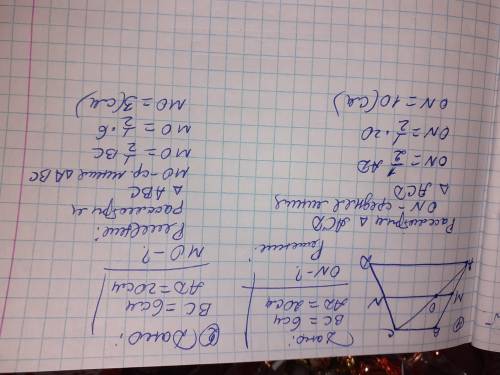 Дано:
BC = 6см
AD = 20см
ON - ?
Решение:
Рассмотрим △ ACD
ON - средняя линия
△ ACD
ON = 1/2 AD
ON = 1/2 · 20
ON = 10 (см)
Дано:
BC = 6см
AD = 20см
MO - ?
Решение:
рассмотрим
△ ABC
MO - ср. линия △ ABC
MO = 1/2 BC
MO = 1/2 · 6
MO = 3 (см)
B
C
M
O
N
A
D